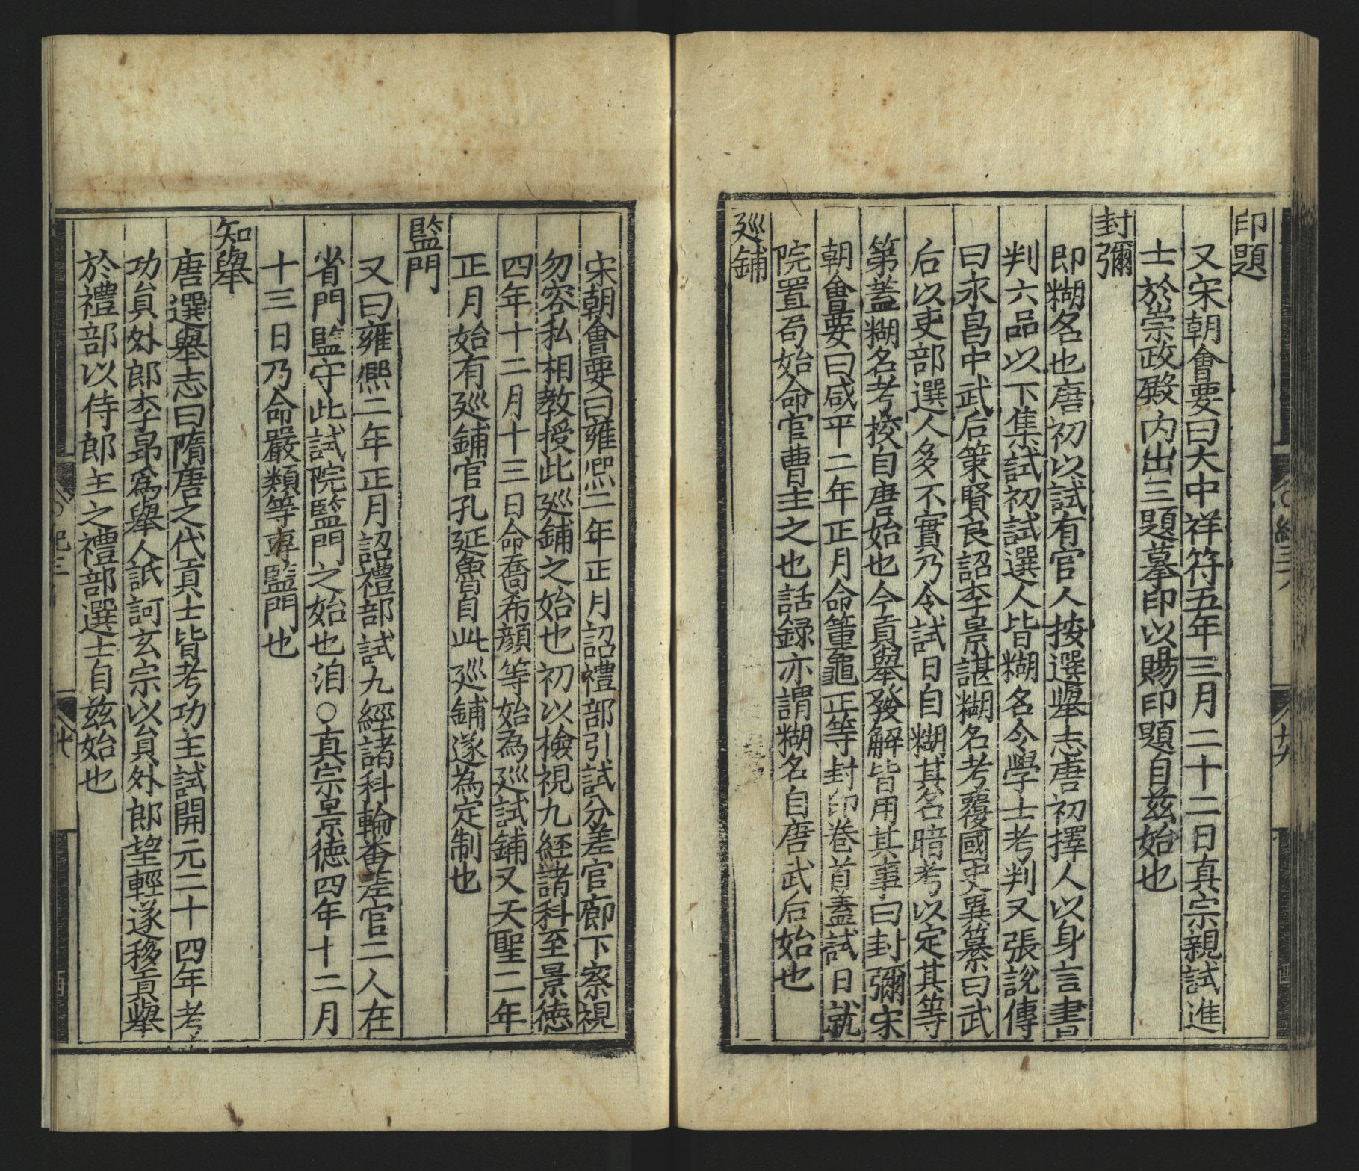 印題
又宋朝會要曰大中祥符五年三月二十二日真宗親試進
士於崇政殿内出三題摹印以賜印題自茲始也
封彌
即糊名也唐初以試有官人按選舉志唐初擇人以身言書
判六品以下集試初試選人皆糊名令學士考判又張說傳
曰永昌中武后策賢良詔李景諶糊名考覆國史異纂曰武
后以吏部選人多不實乃令試日自糊其名暗考以定其等
第蓋糊名考挍自唐始也今貢舉發解皆用其事曰封彌宋
朝會要曰咸平二年正月命董龜正等封印卷首蓋試日就
院置局始命官曹主之也話録亦謂糊名自唐武后始也
廵鋪
宋朝會要曰雍熙二年正月詔禮部引試分差官廊下察視
勿容私相教授此廵鋪之始也初以檢視九經諸科至景徳
四年十二月十三日命喬希顔等始為廵試鋪又天聖二年
正月始有廵鋪官孔延魯自此廵鋪遂為定制也
監門
又曰雍熙二年正月詔禮部試九經諸科輪畨差官二人在
省門監守此試院監門之始也洎○真宗景徳四年十二月
十三日乃命嚴類等專監門也
知舉
唐選舉志曰隋唐之代貢士皆考功主試開元二十四年考
功貟外郎李昻為舉人詆訶玄宗以貟外郎望輕遂移貢舉
於禮部以侍郎主之禮部選士自茲始也